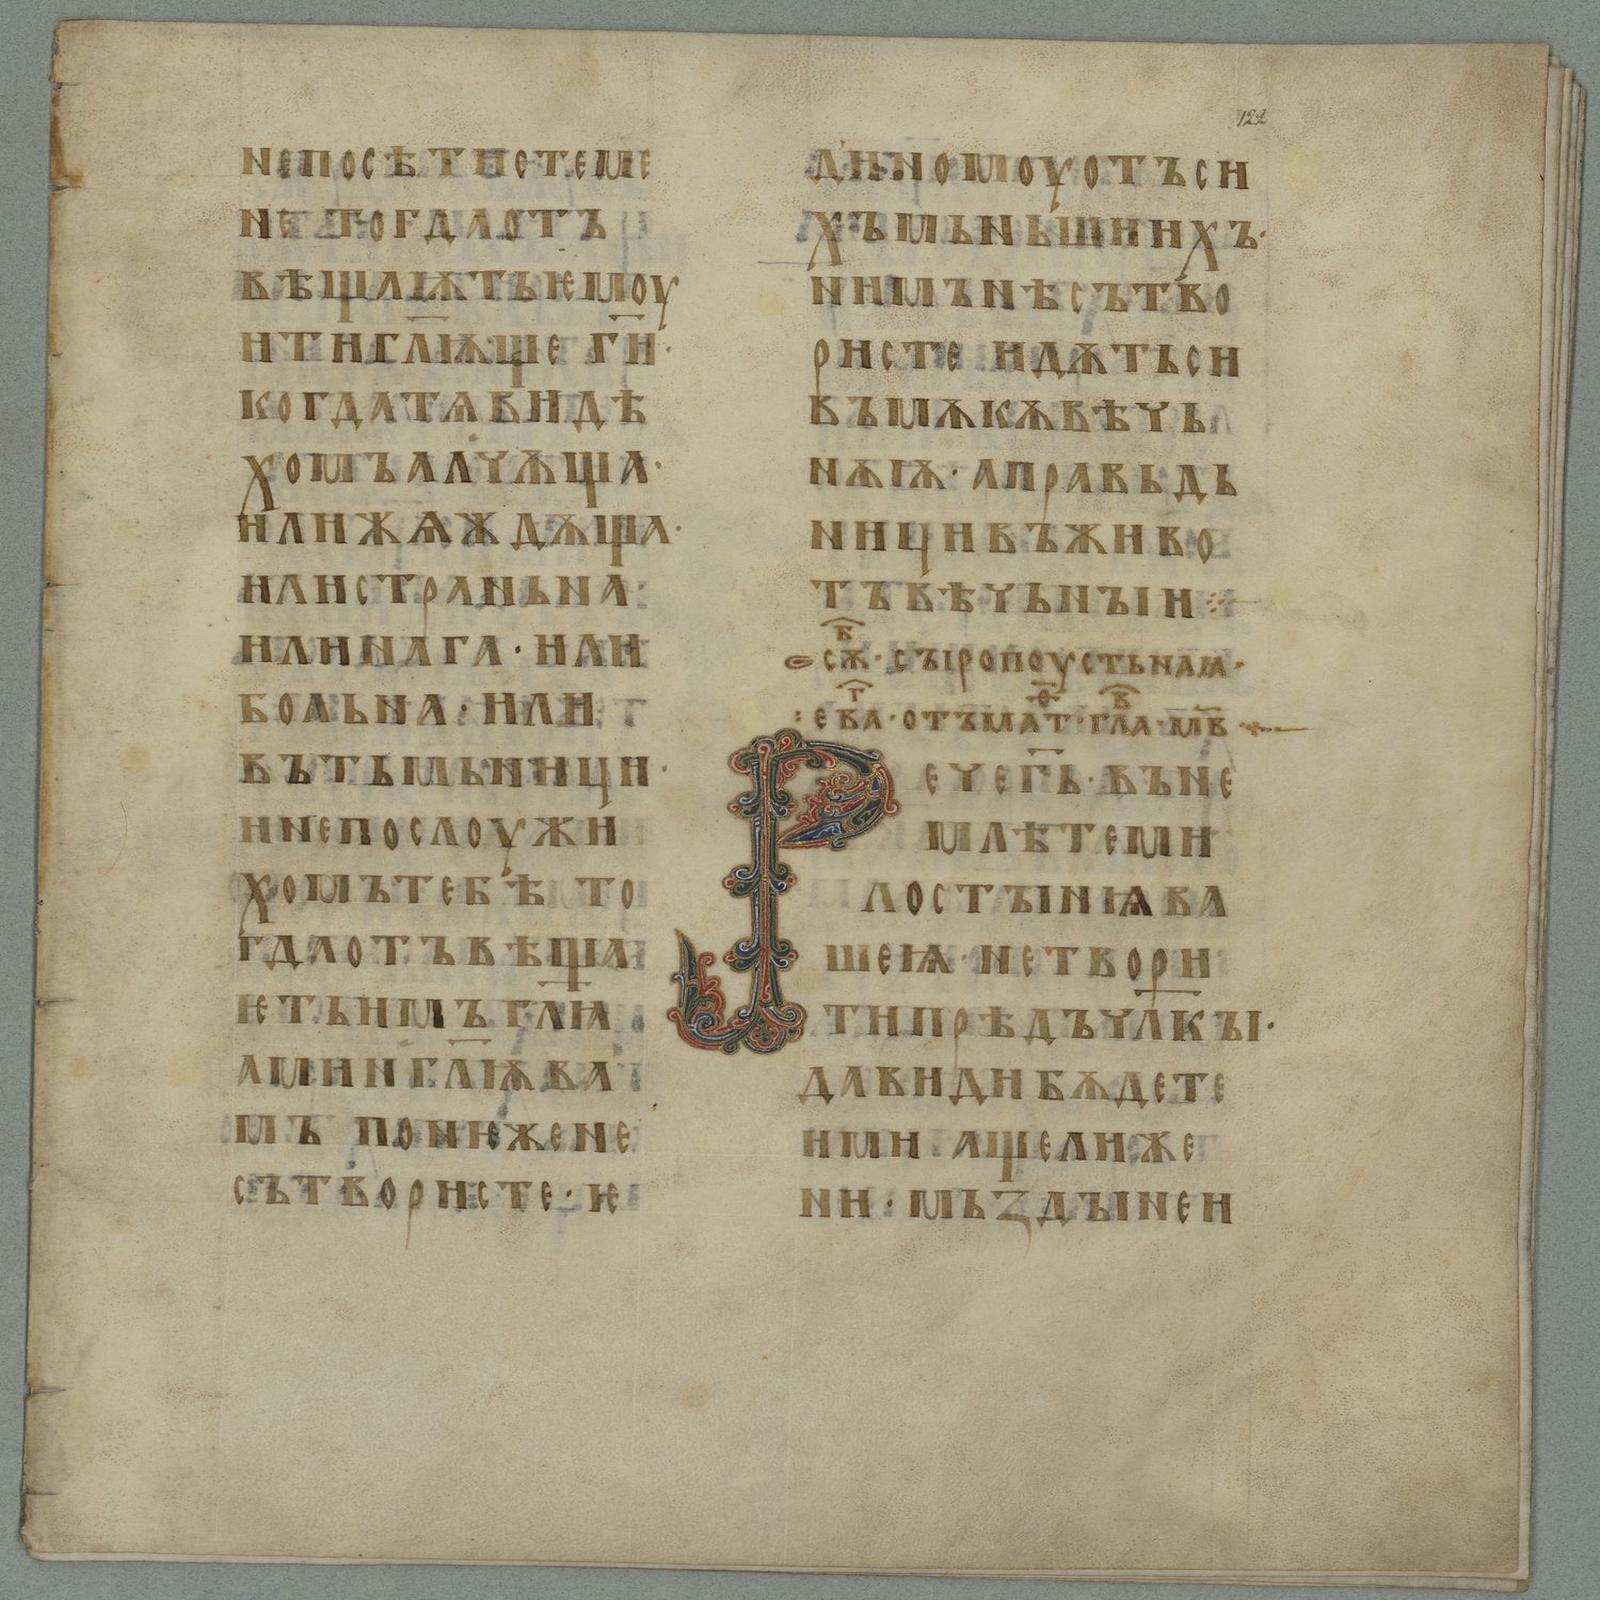 122
непосѣтистеме
не тогдаотъ
вѣщаѭтъѥмоу
итигл҃ѭще г҃и·
когдатѧвидѣ
хомъалчѫща·
илижѧждѫща·
илистраньна·
илинага·или
больна·или
вътьмьници·
инепослоужи
хомътебѣ то
гдаотъвѣща
ѥтьимъгл҃ѩ
аминигл҃ѭва
мъ понѥжене
сътвористе·ѥ
диномоуотъси
хъмьньшиихъ·
нимънѣсътво
ристе идѫтьси
въмѫкѫвѣчь
нѫѭ·аправьдь
ницивъживо
тъвѣчьнъіи
сѫ·в҃·съіропоустьнаѩ·
:ева·г҃·отъмат·ѳ҃·гла·в҃·мв҃
Речег҃ь·въне
млѣтеми
лостъінѩва
шеѩ·нетвори
типрѣдъчл҃къі·
давидибѫдете
ими ащелиже
ни·мьздъінеи